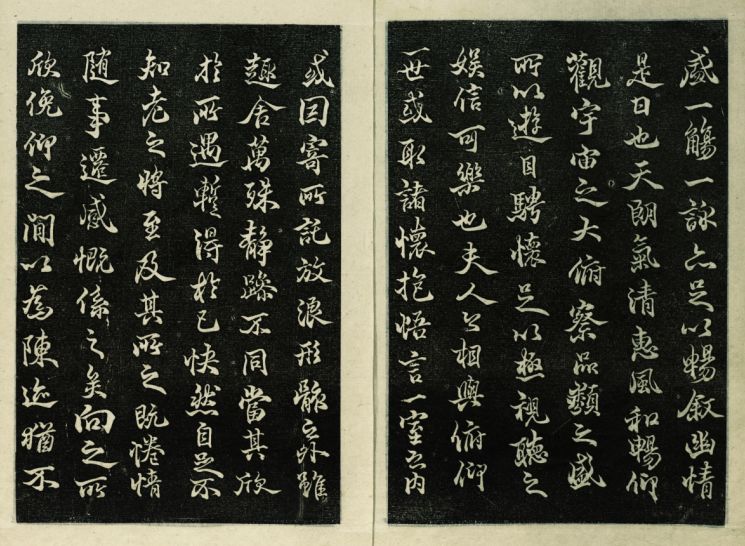 盛一觴一詠亦足以暢敘幽情
是日也天朗氣清惠風和暢仰
觀宇宙之大俯察品類之盛
所以遊目騁懷足以極視聽之
娛信可樂也夫人之相與俯仰
一世或取諸懷抱悟言一室之內
或因寄所託放浪形骸之外雖
趣舍萬殊靜躁不同當其欣
於所遇蹔得於己快然自足不
知老之將至及其所之既惓情
随事遷感慨係之矣向之所
欣俛仰之間以為陳迹猶不